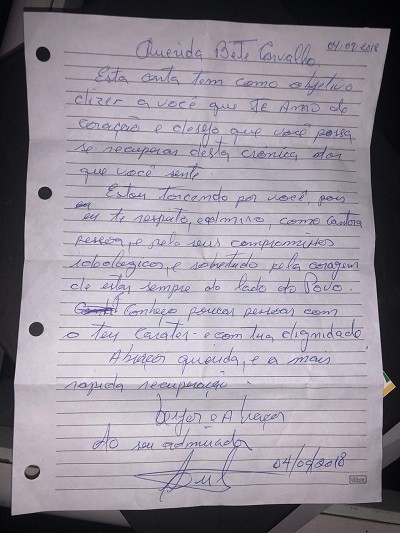 04/09/2018
Querida Bete Carvalho
Esta carta tem como objetivo
dizer a você que te Amo de
coração e desejo que você possa
se recuperar desta cronica dor
que você sente.
Estou torcendo por você, pois
eu te respeito, e admiro, como cantora
pessoa, e pelo seus compromissos
ideologicos, e sobretudo pela coragem
de estar sempre do lado do Povo.
Conheço poucas pessoas com
o teu Carater e com tua dignidade
Abraços querida, e a mais
rapida recuperação.
Beijos e Abraços
do seu admirador
04/09/2018